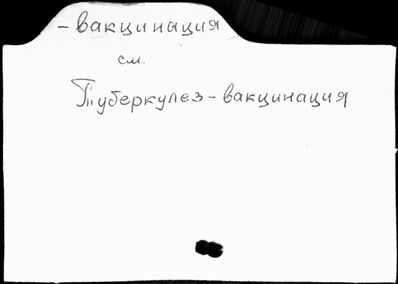 -вакцинация
см.
Туберкулез-вакцинация